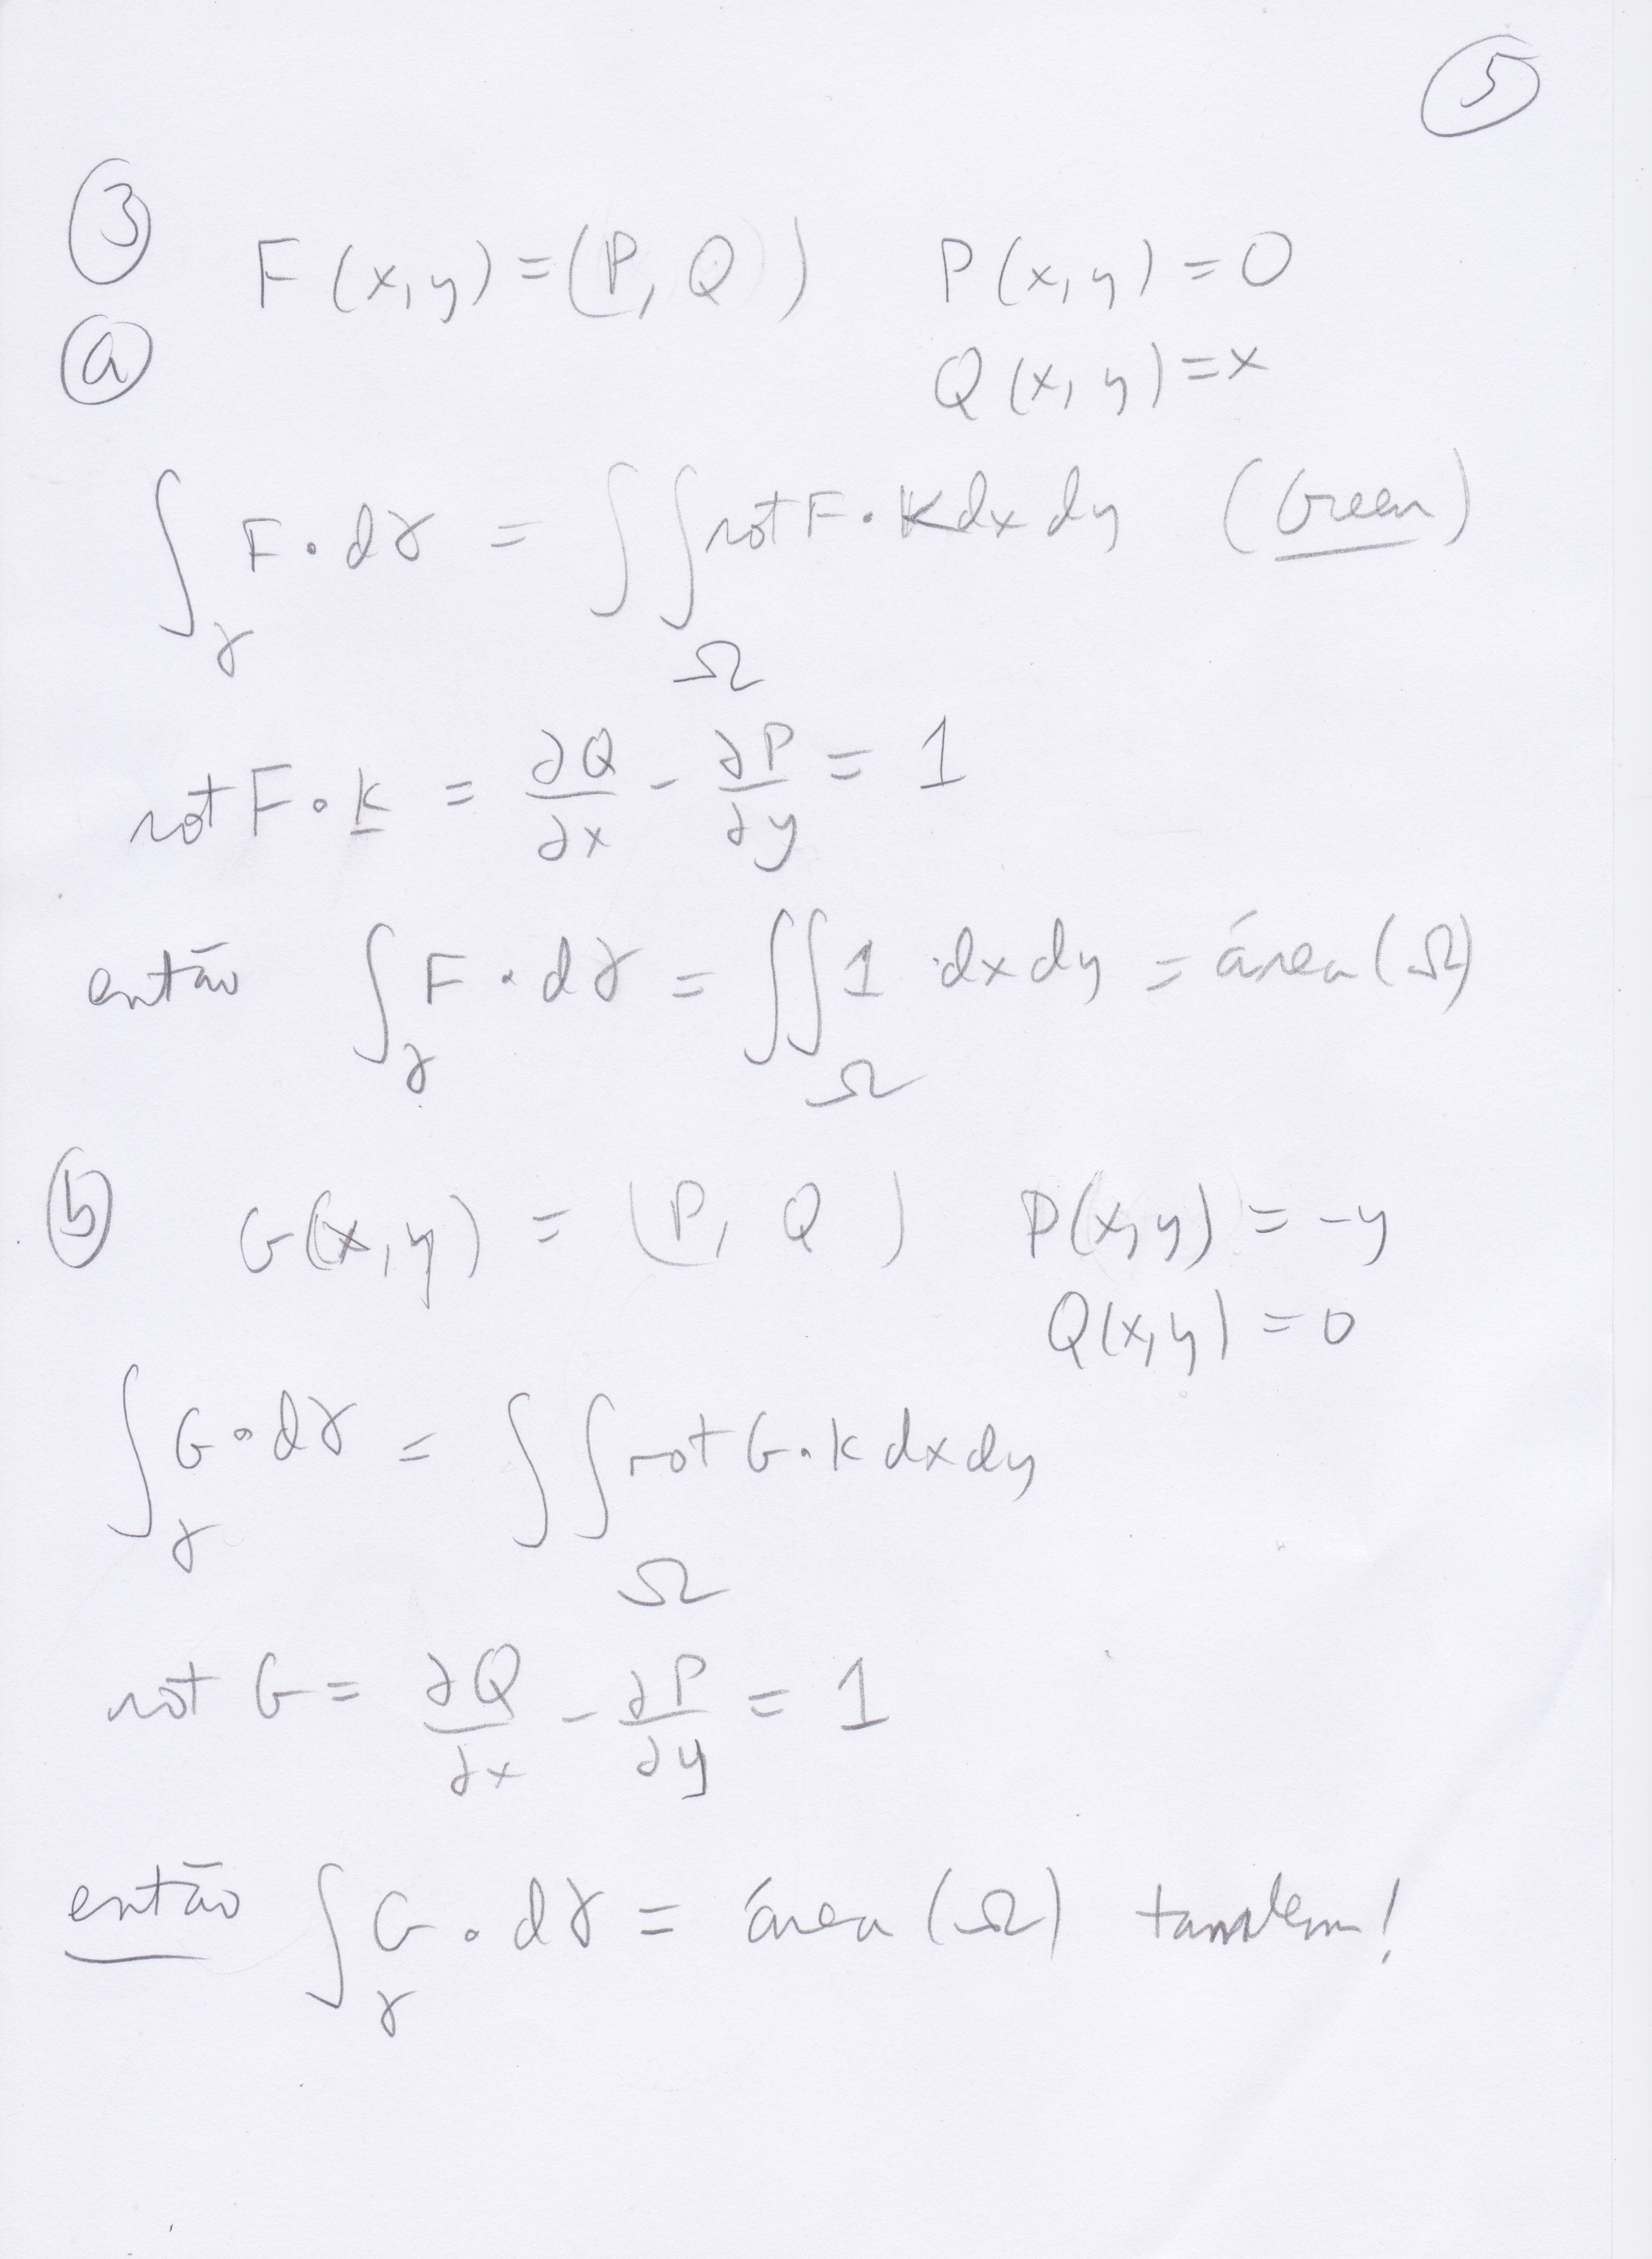 5
3
F(x,y)=(P, Q) P(x,y)=0
a
Q(x,y)=x
∫_γ F·dγ = ∫∫_Ω rot F·k dx dy (Green)
rot F·k = ∂Q/∂x - ∂P/∂y = 1
então ∫_γ F·dγ = ∫∫_Ω 1 dx dy = área(Ω)
b G(x,y) = (P, Q) P(x,y) = -y
Q(x,y) = 0
∫_γ G·dγ = ∫∫_Ω rot G·k dx dy
rot G = ∂Q/∂x - ∂P/∂y = 1
então ∫_γ G·dγ = área (Ω) também!